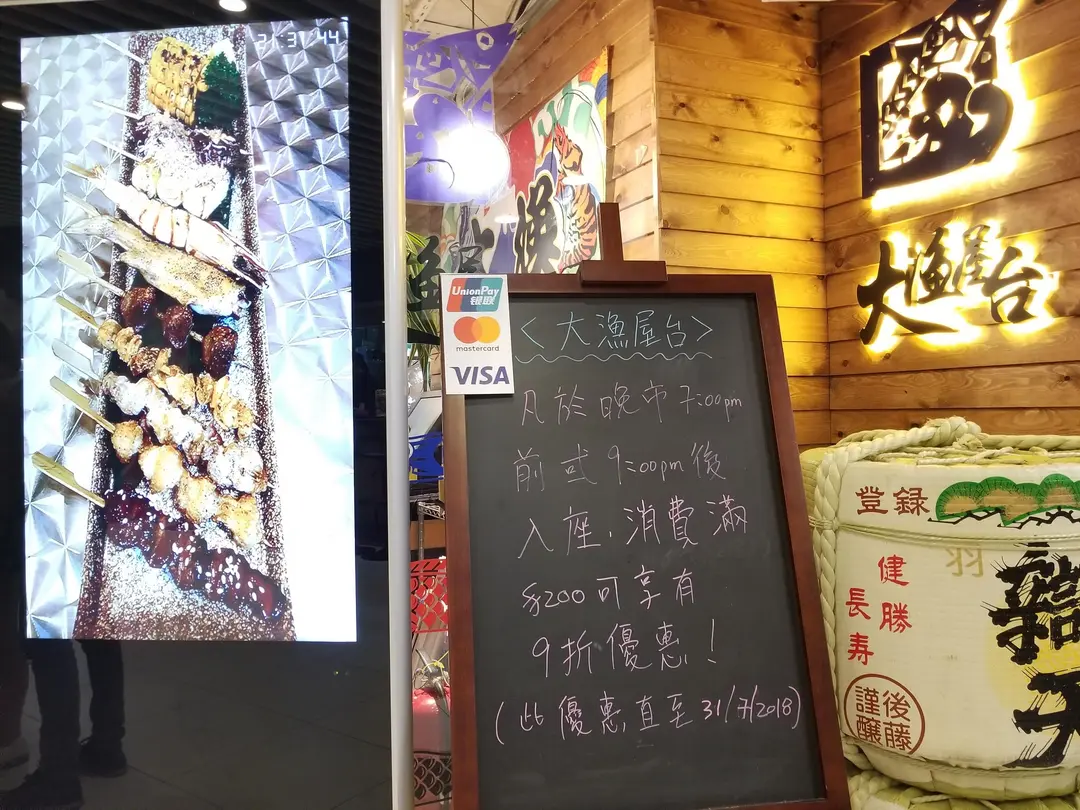 21:31:44
UnionPay
银联
mastercard
VISA
<大漁屋台>
凡於晚市7:00pm
前或9:00pm後
入座,消費滿
$200可享有
9折優惠!
(此優惠直至31/7/2018)
大漁屋台
登録
健勝
長寿
後藤
謹醸